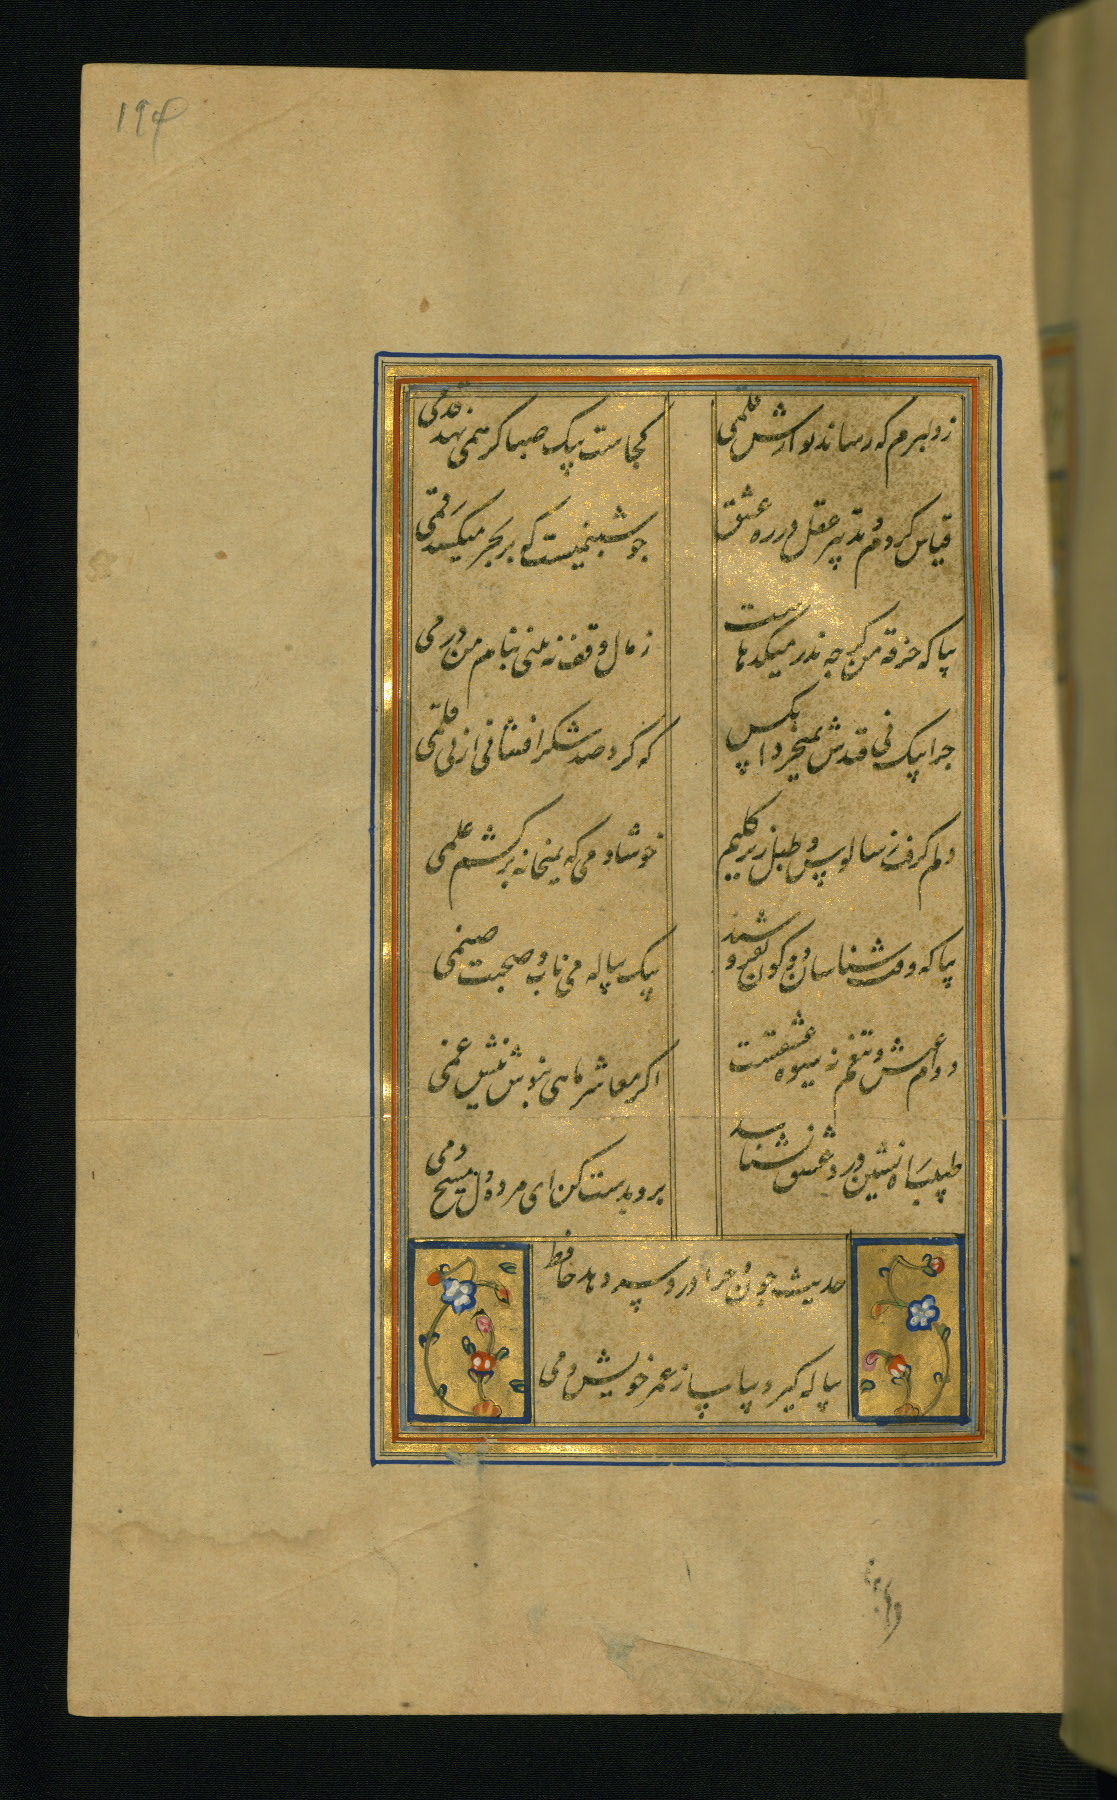 ۱۹۴
ز دلبرم که رساند نوازش قلمی
کجاست پیک صبا گر همی نهد قدمی
قیاس کردم و تدبیر عقل در ره عشق
چو شبنمیست که بر بحر میکشد رقمی
بیا که خرقه من گر چه نذر میکدهاست
ز مال وقف نه بینی بنام من درمی
چرا بیک نی قندش نمیخرد انکس
که کرد صد شکر افشانی از نی قلمی
دلم گرفت ز سالوس و طبل زیر گلیم
خوشا دمی که بمیخانه برکشم علمی
بیا که وقت شناسان دو کون بفروشند
بیک پیاله می ناب و صحبت صنمی
دوام عیش و تنعم نه شیوه عشقست
اگر معاشر مایی بنوش نیش غمی
طبیب راه نشین درد عشق نشناسد
برو بدست کن ای مرده دل مسیح دمی
حدیث چون و چرا درد سر دهد حافظ
پیاله گیر و بیاسا ز عمر خویش دمی